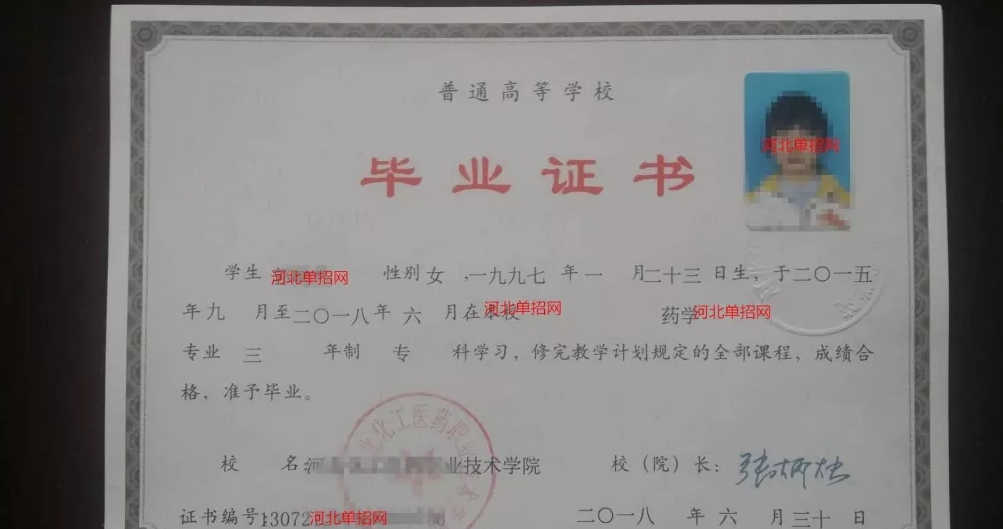 普通高等学校
毕业证书
河北单招网
学生 河北单招网 性别 女 ,一九九七 年 一 月 二十三 日生，于二〇一五
年 九 月至 二〇一八 年 六 月在本校 河北单招网 药学 河北单招网
专业 三 年制 专 科学习，修完教学计划规定的全部课程，成绩合
格，准予毕业。
化工医药职
校 名: 河 业技术学院 校（院）长:
证书编号: 13072 河北单招网 二〇一八 年 六 月 三十 日